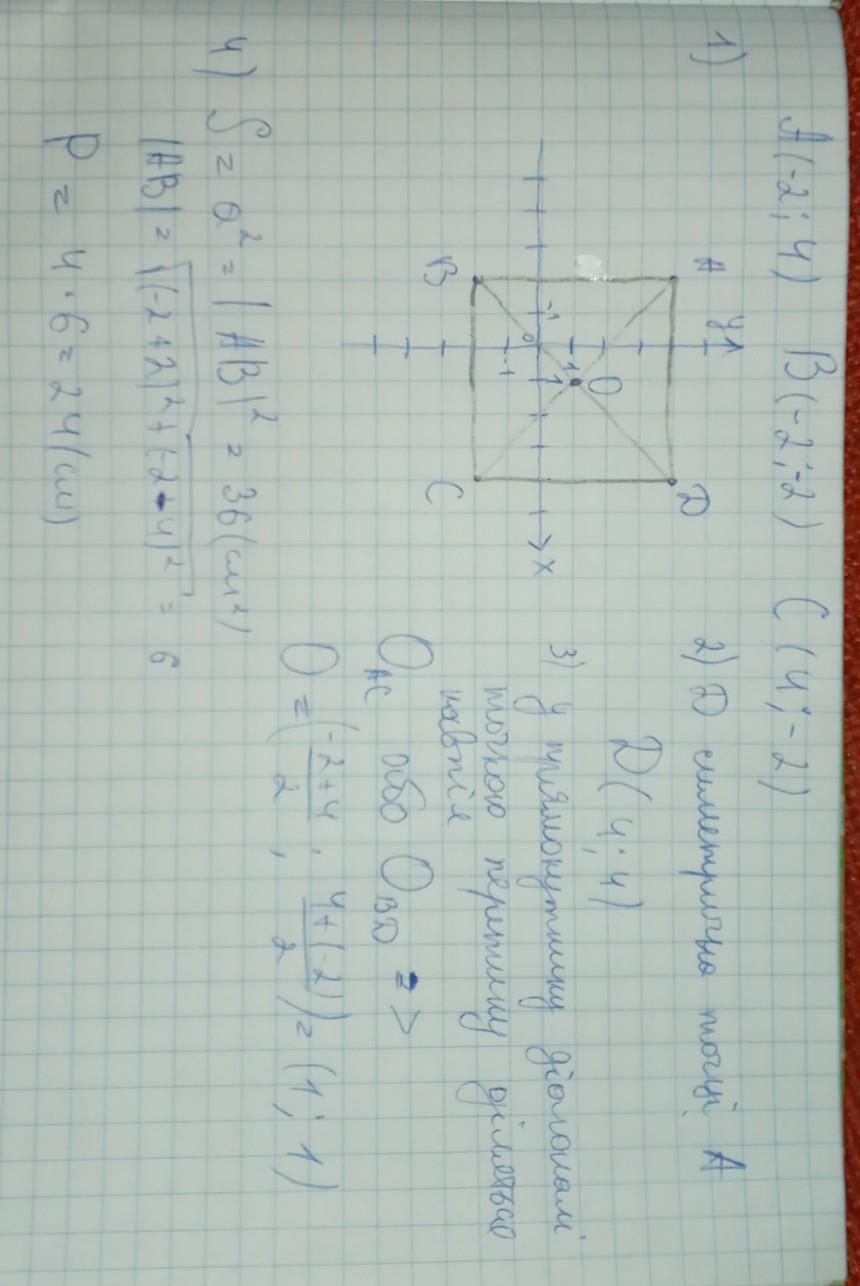 A(-2; 4) B(-2; -2) C(4; -2)
1)
A
y
D
O
1
-1
0
1
x
-1
B
C
2) D симетрична точці A
D(4; 4)
3) у прямокутнику діагоналі
точкою перетину діляться
навпіл
O_AC або O_BD =>
O = (\frac{-2+4}{2}; \frac{4+(-2)}{2}) = (1; 1)
4) S = a² = |AB|² = 36 (см²)
|AB| = √((-2+2)²+(-2-4)²) = 6
P = 4·6 = 24 (см)